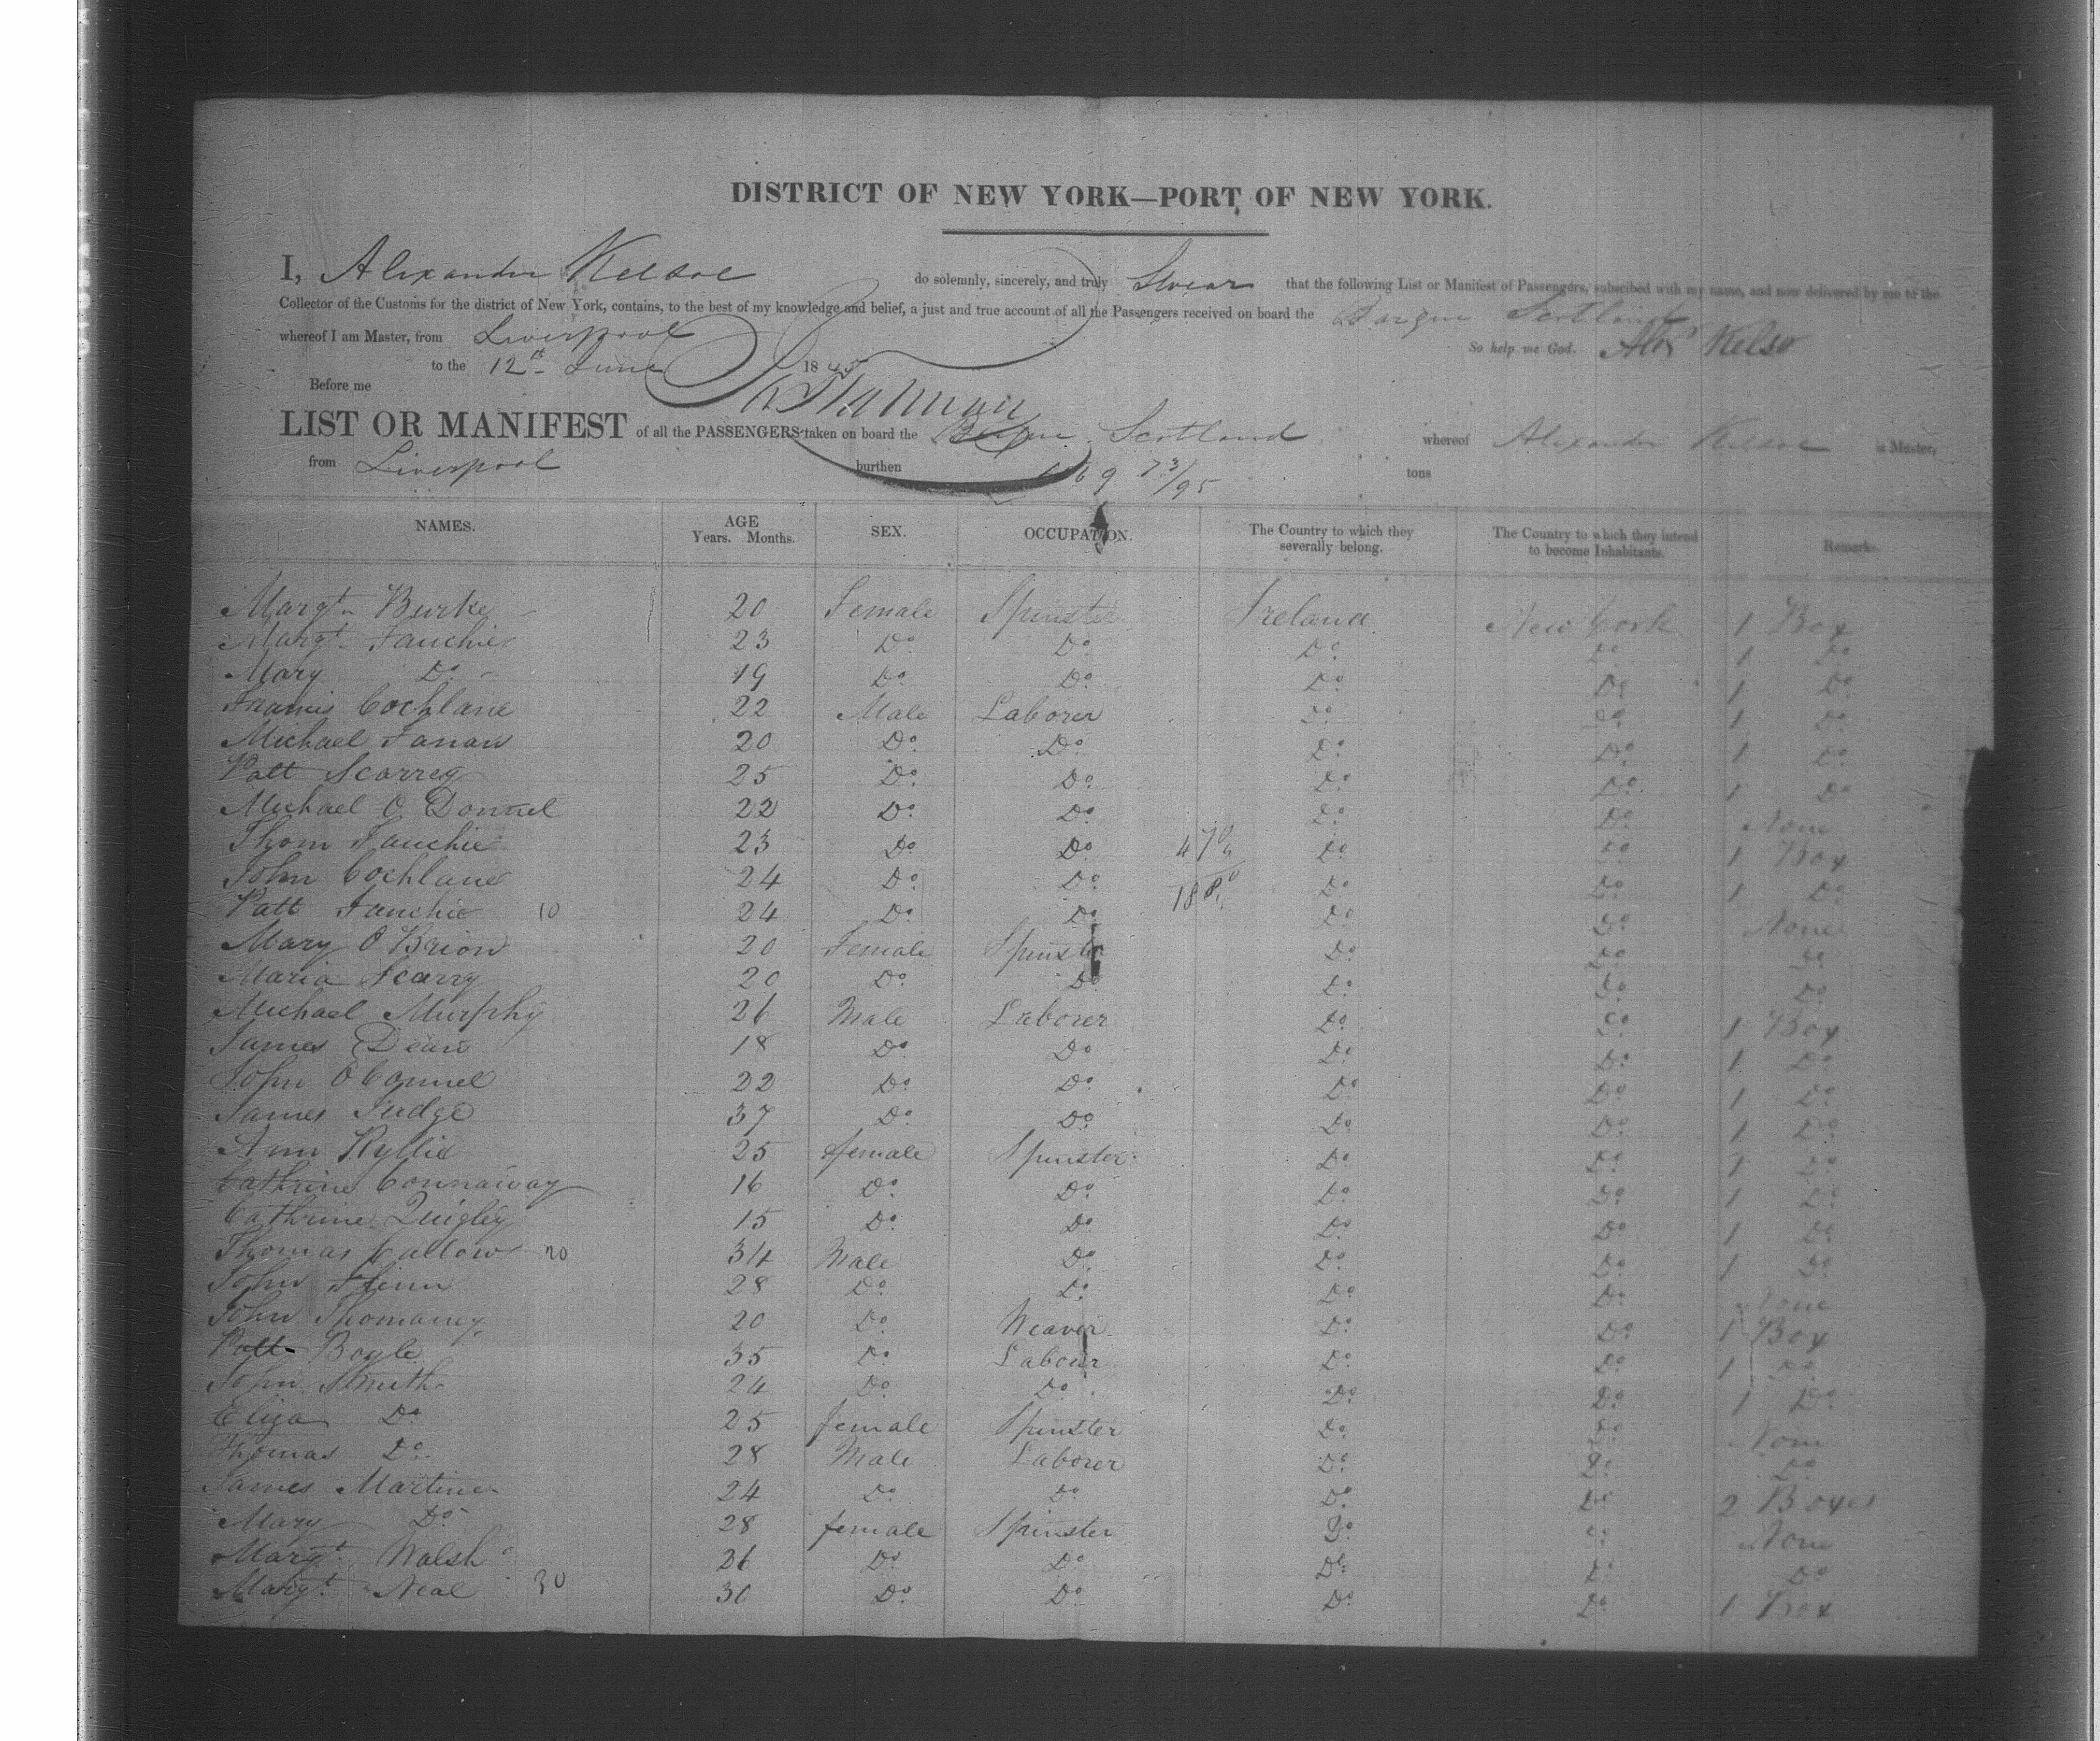 DISTRICT OF NEW YORK—PORT OF NEW YORK.
I, Alexander Kelsoe do solemnly, sincerely, and truly Swear that the following List or Manifest of Passengers, subscibed with my name, and now delivered by me to the
Collector of the Customs for the district of New York, contains, to the best of my knowledge and belief, a just and true account of all the Passengers received on board the Barque Scotland
whereof I am Master, from Liverpool
So help me God. Alexr Kelso
to the 12th June 1845
Before me
LIST OR MANIFEST of all the PASSENGERS taken on board the Barque Scotland whereof Alexander Kelsoe is Master,
from Liverpool burthen 69 73/95 tons
NAMES. AGE Years. Months. SEX. OCCUPATION. The Country to which they severally belong. The Country to which they intend to become Inhabitants. Remarks.
Margt. Burke 20 Female Spinster Ireland New York 1 Box
Margt. Fauchie 23 Do. Do. Do. Do. 1 Do.
Mary Do. 19 Do. Do. Do. Do. 1 Do.
Francis Cochlane 22 Male Laborer Do. Do. 1 Do.
Michael 20 Do. Do. Do. Do. 1 Do.
Patt 25 Do. Do. Do. Do. 1 Do.
Michael O Donnel 22 Do. Do. Do. Do. None
Thom Fauchie 23 Do. Do. Do. Do. 1 Box
John Cochlane 24 Do. Do. Do. Do. 1 Do.
Patt Fauchie 10 24 Do. Do. Do. Do. None
Mary O Brion 20 Female Spinster Do. Do. Do.
Maria Scarry 20 Do. Do. Do. Do. Do.
Michael Murphy 26 Male Laborer Do. Do. 1 Box
James Dean 18 Do. Do. Do. Do. 1 Do.
John OConnel 22 Do. Do. Do. Do. 1 Do.
James Judge 37 Do. Do. Do. Do. 1 Do.
Ann Kyllie 25 female Spinster Do. Do. 1 Do.
Cathrine Connaway 16 Do. Do. Do. Do. 1 Do.
Cathrine Quigley 15 Do. Do. Do. Do. 1 Do.
Thomas 20 34 Male Do. Do. Do. 1 Do.
John Flenn 28 Do. Do. Do. Do. None
John 20 Do. Weaver Do. Do. 1 Box
Patt Boyle 35 Do. Labourer Do. Do. 1 Do.
John Smith 24 Do. Do. Do. Do. 1 Do.
Eliza Do. 25 female Spinster Do. Do. Non
Thomas Do. 28 Male Laborer Do. Do. Do.
James Martin 24 Do. Do. Do. Do. 2 Boxes
Mary Do. 28 female Spinster Do. Do. None
Margt. Walsh 26 Do. Do. Do. Do. Do.
Margt. Neal 30 30 Do. Do. Do. Do. 1 Box